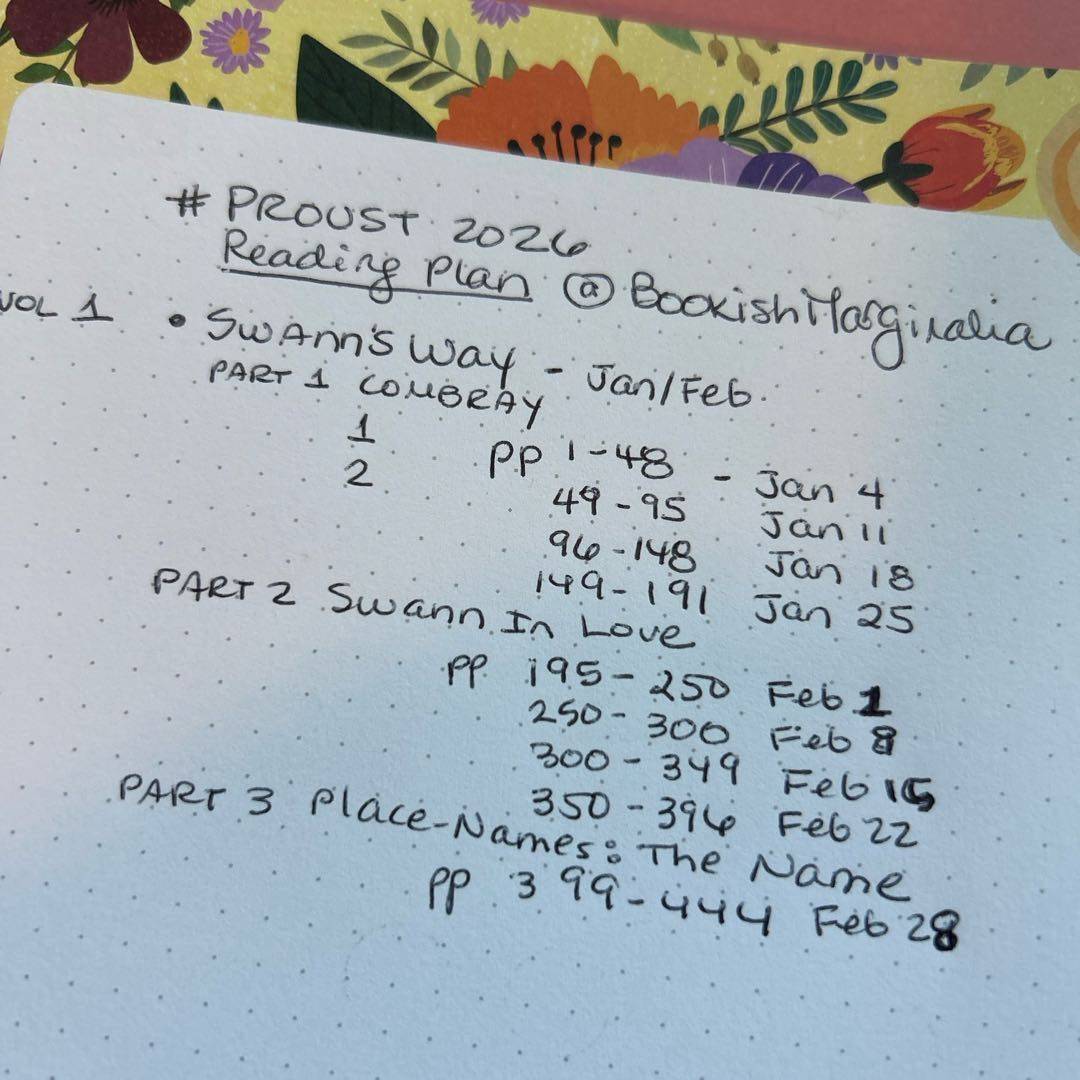 # PROUST 2026
Reading Plan @BookishMarginalia
VOL 1 • Swann's Way - Jan/Feb.
PART 1 COMBRAY
1 pp 1-48 - Jan 4
2 49-95 Jan 11
96-148 Jan 18
149-191 Jan 25
PART 2 Swann In Love
pp 195-250 Feb 1
250-300 Feb 8
300-349 Feb 15
350-396 Feb 22
PART 3 Place-Names: The Name
pp 399-444 Feb 28